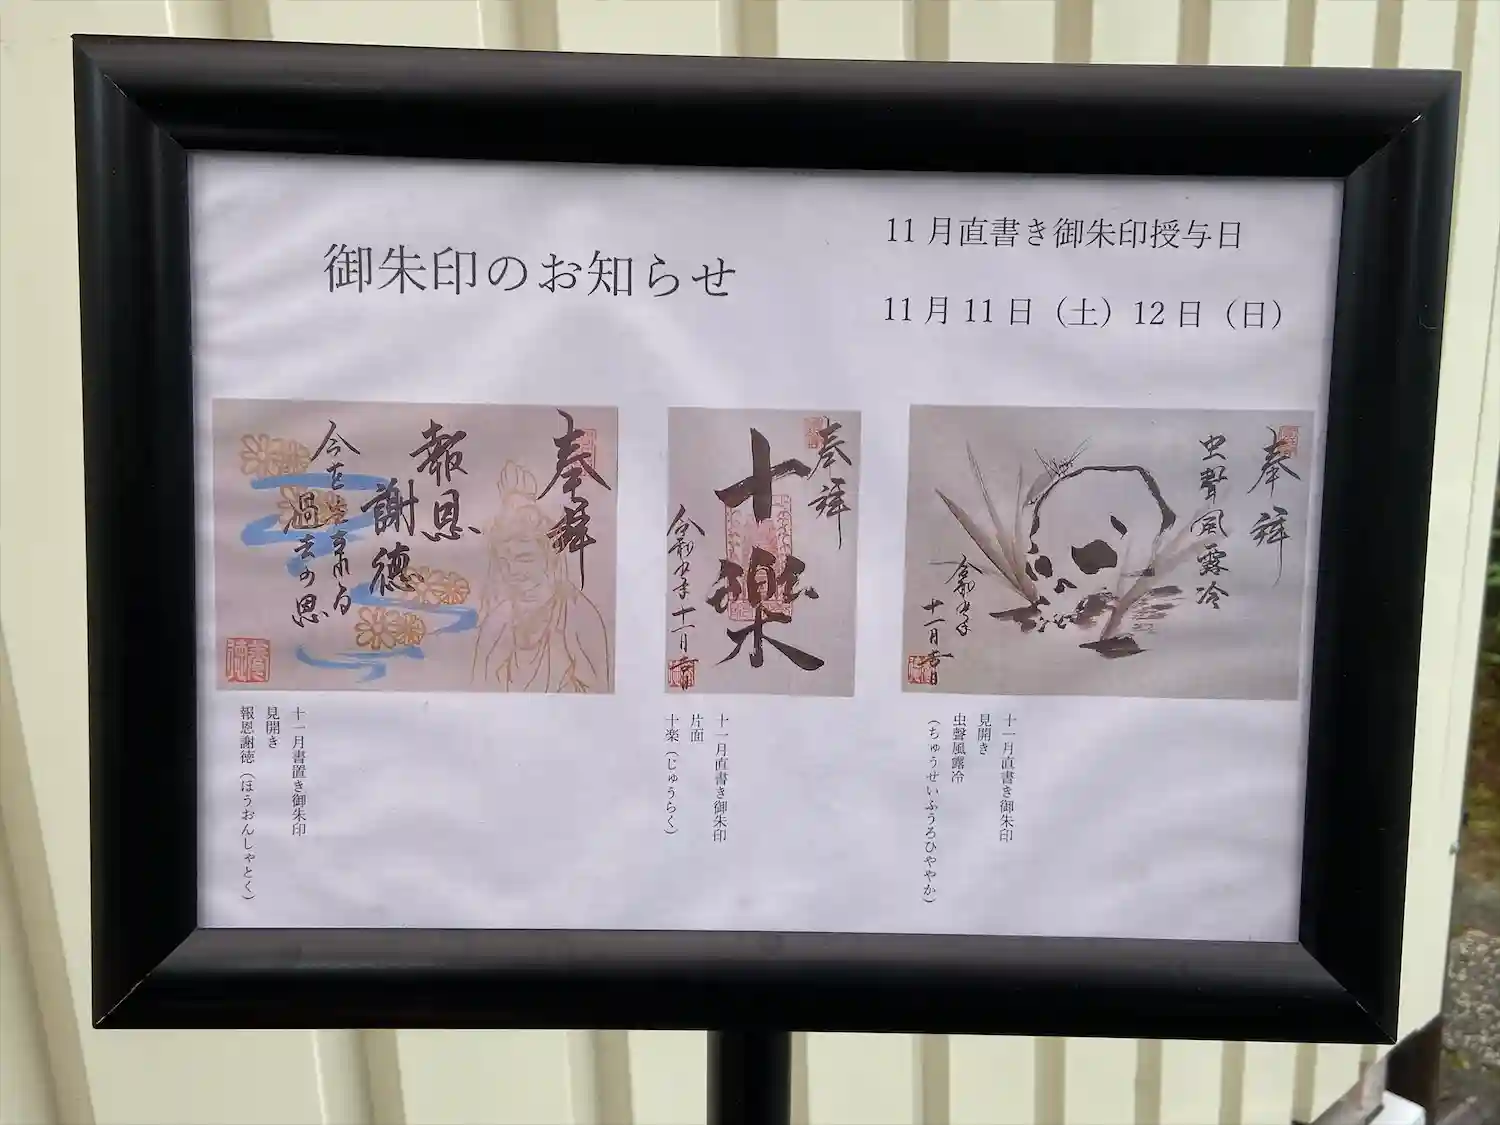 御朱印のお知らせ
11月直書き御朱印授与日
11月11日（土）12日（日）
奉拝
報恩
謝徳
今在
過去の恩
十一月書置き御朱印
見開き
報恩謝徳（ほうおんしゃとく）
奉拝
十楽
令和五年十一月吉日
十一月直書き御朱印
片面
十楽（じゅうらく）
奉拝
虫聲風露冷
令和五年
十一月吉日
十一月直書き御朱印
見開き
虫聲風露冷
（ちゅうせいふうろひややか）